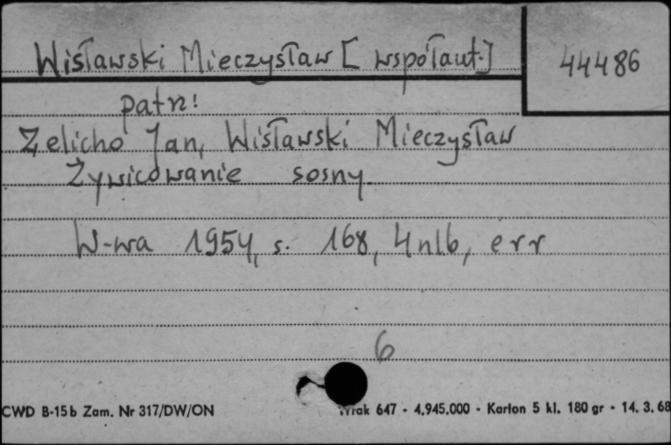 Wisławski Mieczysław [współaut.]
44486
patrz!
Zelicho Jan, Wisławski Mieczysław
Żywicowanie sosny.
W-wa 1954, s. 168, 4 nlb, err
6
CWD B-15b Zam. Nr 317/DW/ON
647 - 4.945.000 - Karton 5 kl. 180 gr - 14. 3. 68